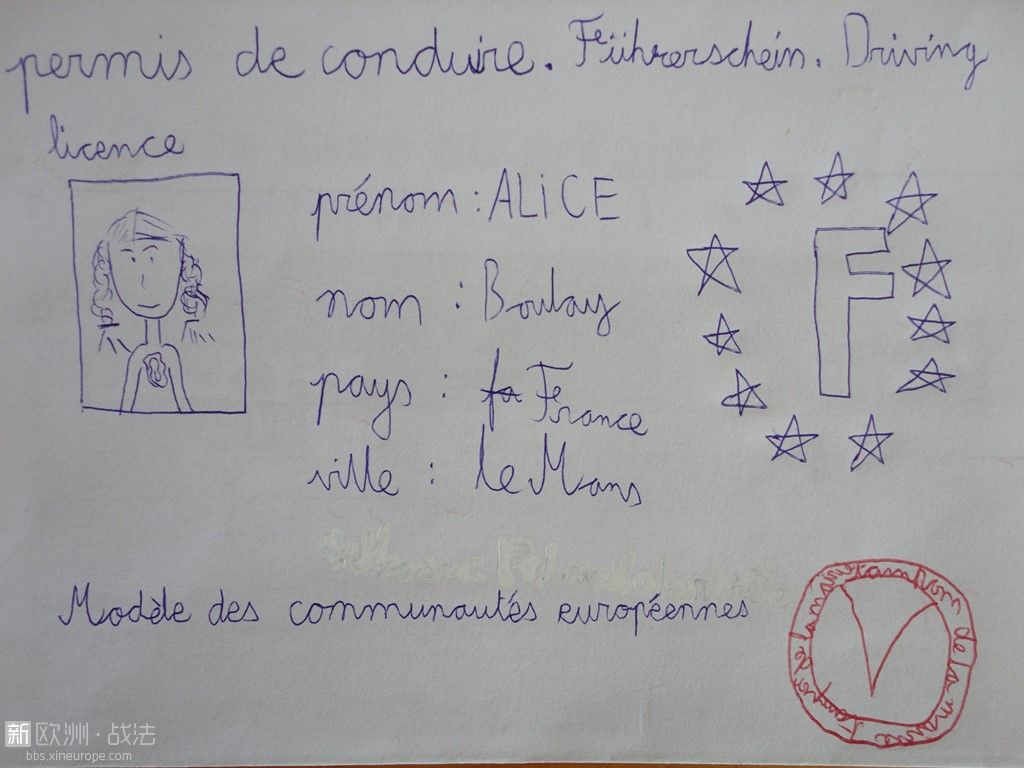 permis de conduire. Führerschein. Driving
licence
prénom : ALiCE
nom : Boulay
pays : France
ville : le Mans
F
Modèle des communautés européennes
de la
新欧洲·战法
bbs.xineurope.com